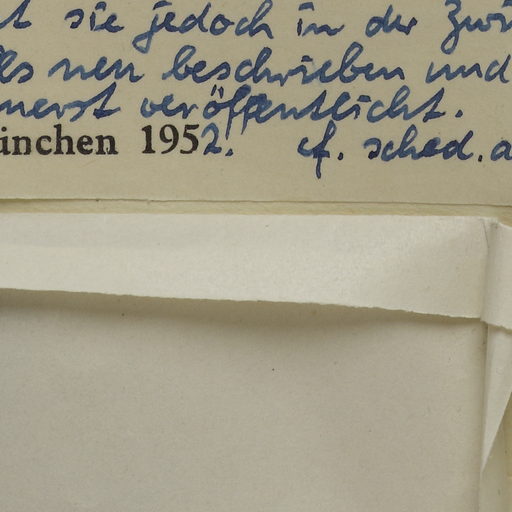 t sie jedoch in der Zwi
ls neu beschrieben und
nerst veröffentlicht.
ünchen 1952. cf. sched. a